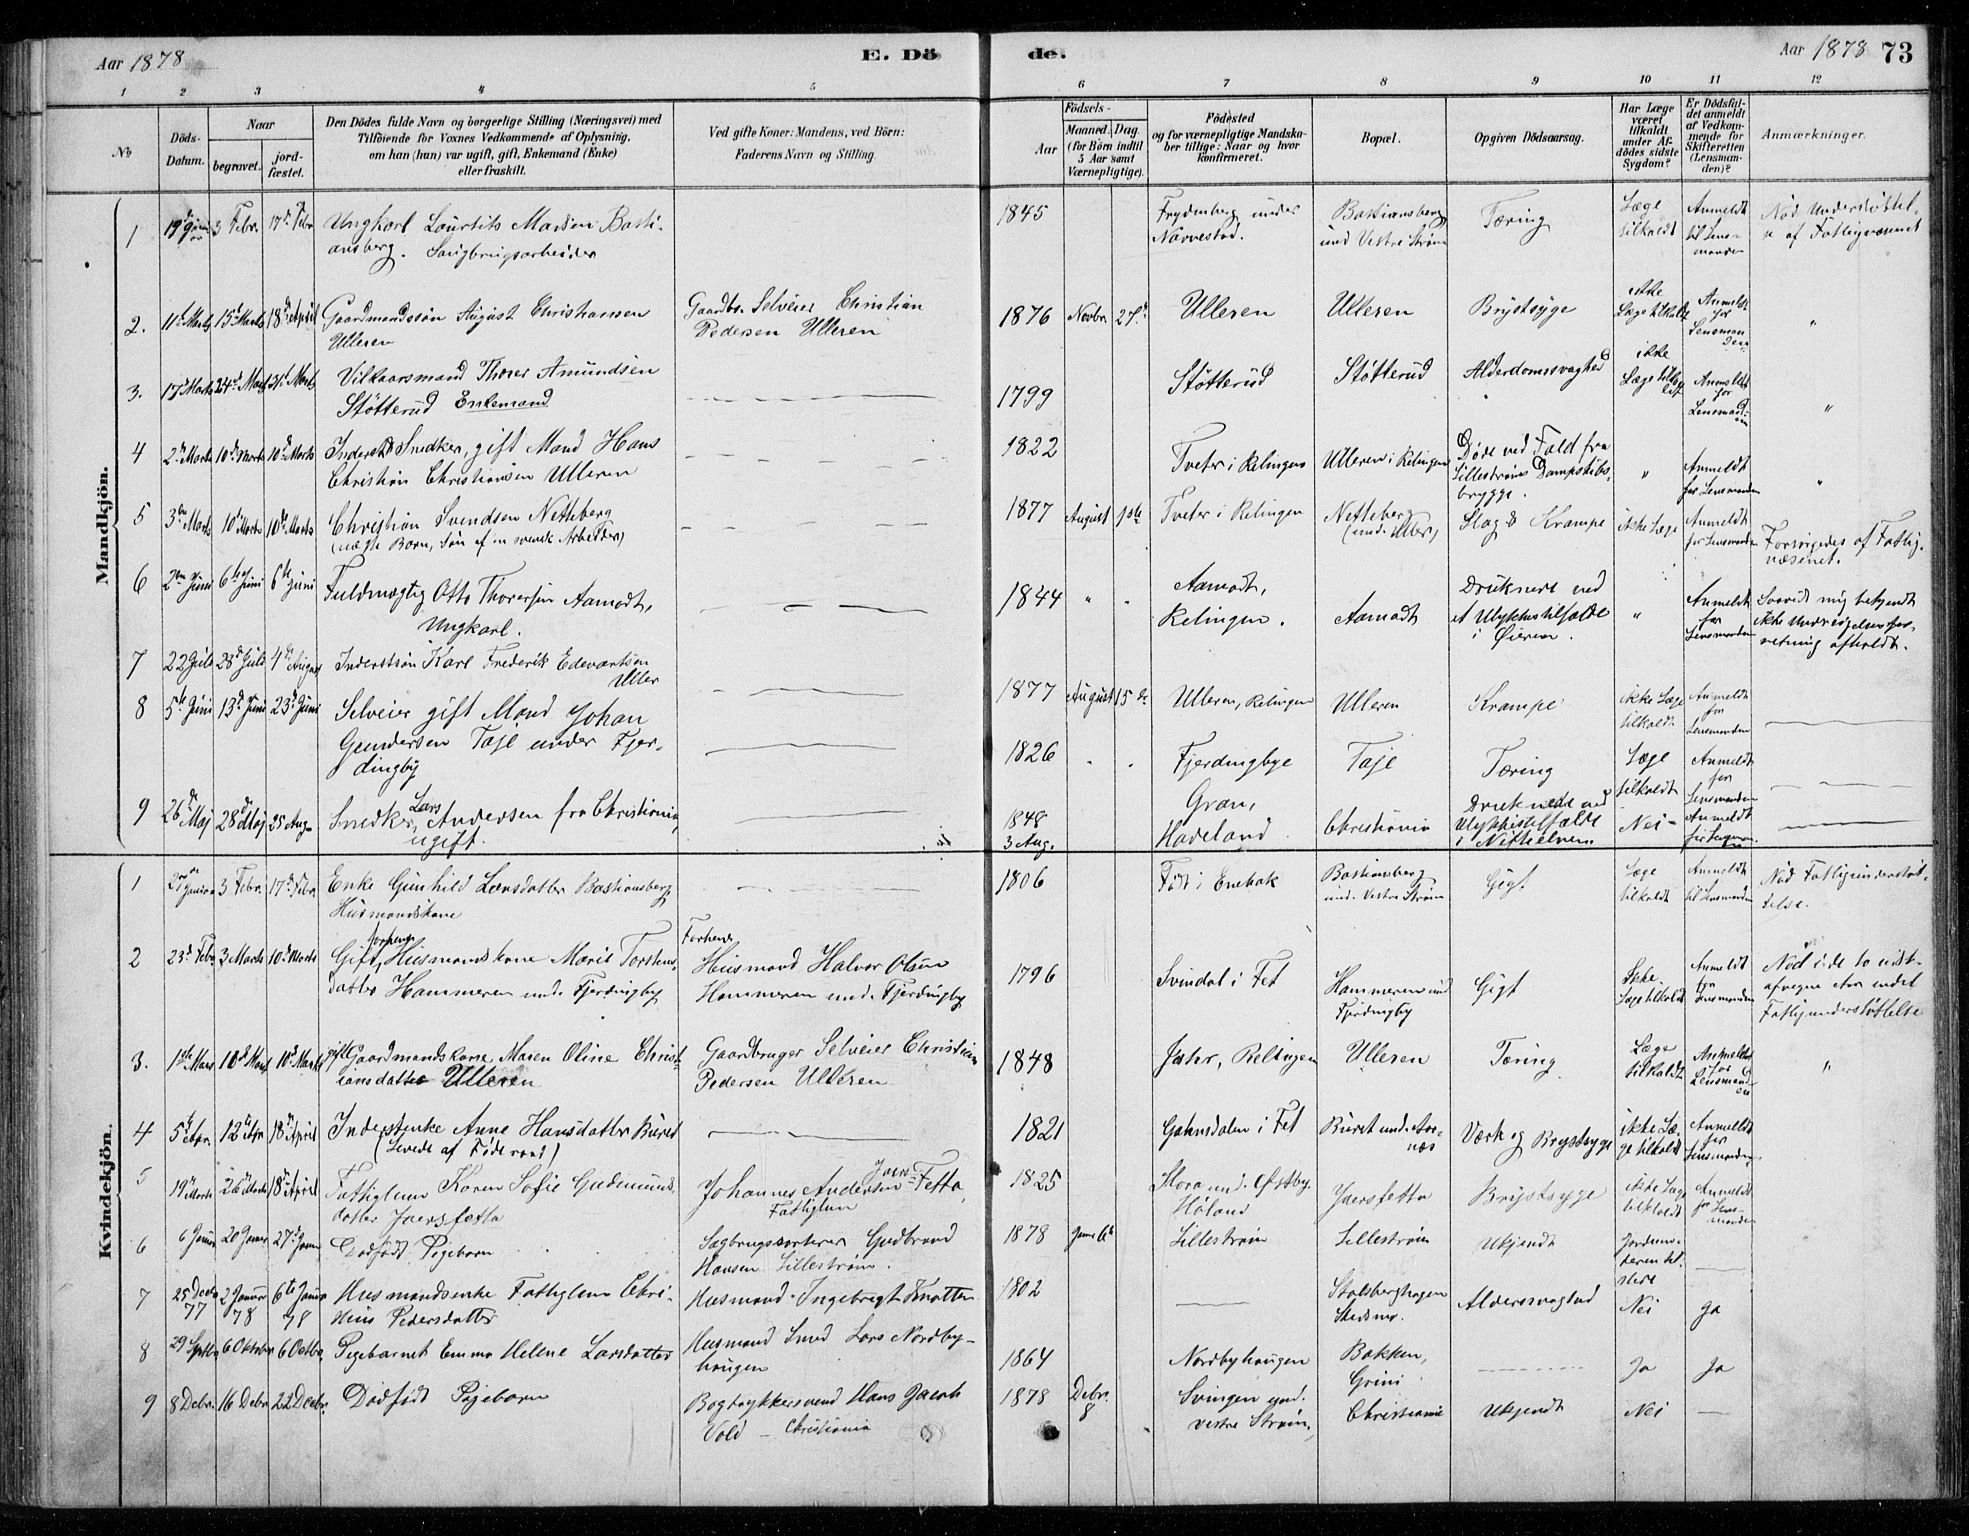 Aar 1878
E. Dö
de.
Aar 1878 73
1 2 3 4 5 6 7 8 9 10 11 12
No
Döds-Datum.
Naar
begravet.
jord-fæstet.
Den Dödes fulde Navn og borgerlige Stilling (Næringsvei) med
Tilföiende for Voxnes Vedkommende af Oplysning,
om han (hun) var ugift, gift, Enkemand (Enke)
eller fraskilt.
Ved gifte Koner: Mandens, ved Börn:
Faderens Navn og Stilling
Födsels-
Aar
Maaned. Dag
(for Börn indtil
5 Aar samt
Værnepligtige).
Födested
og for værnepligtige Mandska-
ber tillige: Naar og hvor
konfirmeret.
Bopæl.
Opgiven Dödsaarsag.
Har Læge
været
tilkaldt
under Af-
dödes sidste
Sygdom?
Er Dödsfal-
det anmeldt
af Vedkom-
mende for
Skifteretten
(Lensman-
den)?
Anmærkninger.
Mandkjön.
1 19d Januar 3 Febr. 17d Febr Ungkarl Lauritz Madsen Basti-
ansberg. Saugbrugsarbeider
1845 Frydenberg under
Navnestad.
Bastiansberg
und Vestre Strøm
Tæring
Læge
tilkaldt
Anmeldt
til Lens-
manden
Nød Understøttel-
se af Fattigvæsenet
2. 11t Marts 15d Marts 18d April Gaardmandssøn August Christiansen
Ulleren
Gaardbr. Selveier Christian
Pedersen Ulleren
1876 Novbr 27d Ulleren Ulleren Brystsyge
ikke
Læge tilkaldt
Anmeldt
for
Lensman-
den
"
3. 17d Marts 24d Marts 31t Marts Vilkaarsmand Thorer Amundsen
Støtterud Enkemand
1799 Støtterud Støtterud Alderdomssvaghed
ikke
Læge tilkaldt
Anmeldt
for
Lensmanden
"
4 2d Marts 10d Marts 10d Marts Inderst Snedker, gift Mand Hans
Christian Christiansen Ulleren
1822 Tveter i Relingen Ulleren i Relingen
Døde ved Fald fra
Lillestrøms Dampskibs-
brygge.
"
Anmeldt
for Lensmanden
"
5 3die Marts 10d Marts 10d Marts Christian Svendsen Netteberg
(uægte Barn, Søn af en svensk Arbeider)
1877 August 1ste Tveter i Relingen Netteberg
(und. Uller)
Slag & Krampe ikke Læge
Anmeldt
for Lensmanden
Forsørgedes af Fattig-
væsenet.
6 2den Juni 6te Juni 6te Juni Fuldmægtig Otto Thoresen Aamodt,
Ungkarl.
1844 " " Aamodt,
Relingen.
Aamodt
Druknede ved
et Ulykkestilfælde
i Øieren.
"
Anmeldt
for
Lensmanden
Saavidt mig bekjendt
ikke Undersøgelsesfor-
retning afholdt.
7 22 Juli 28d Juli 4de August Inderstsøn Karl Frederik Edevartsen
Uller
1877 August 15de Ulleren, Relingen Ulleren Krampe
ikke Læge
tilkaldt
Anmeldt
for
Lensmanden
8 5te Juni 13d Juni 23d Juni Selveier gift Mand Johan
Gundersen Taje under Fjer-
dingby
1826 Fjerdingbye Taje Tæring
Læge
tilkaldt
Anmeldt
for
Lensmanden
9 26de Maj 28d Maj 25 Aug Snedker Lars Andersen fra Christiania,
ugift.
1848
3 Aug.
Gran,
Hadeland
Christiania
Druknede ved
Ulykkestilfælde
i Nitteelven.
Nei
Anmeldt
for Lensmanden
Kvindekjön.
1 27de Januar 3 Febr. 17d Febr. Enke Gunhild Larsdatter Bastiansberg
Husmandskone
1806 Født i Enebak
Bastiansberg
und. Vestre Strøm
Gigt
Læge
tilkaldt
Anmeldt
til Lensmanden
Nød Fattigunderstøt-
telse.
2 23d Febr 3 Marts 10d Marts Gift, forhenv. Husmandskone Marie Torstens-
datter Hammeren und. Fjerdingby
Forhenv.
Husmand Halvor Olsen
Hammeren und. Fjerdingby
1796 Svindal i Fet
Hammeren und
Fjerdingby
Gigt
Ikke
Læge tilkaldt
Anmeldt
for
Lensmanden
Nød i de to sidst-
afvegne Aar endel
Fattigunderstøttelse
3. 1ste Mars 10d Mars 10d Marts gift Gaardmandskone Maren Oline Christ-
iansdatter Ulleren
Gaardbruger Selveier Christian
Pedersen Ulleren
1848 Jahr, Relingen Ulleren Tæring
Læge
tilkaldt
Anmeldt
for
Lensmand-
en
"
4 5t Apr. 12t Apr 18d April Inderstenke Anne Hansdatter Buret
(Levede af Føderaad)
1821 Gahnsdalen i Fet Buret und. Aar-
næs
Værk og Brystsyge
ikke Læ-
ge tilkaldt
Anmeldt
for
Lensmanden
5 19d Marts 26d Marts 18d April Fattiglem Karen Sofie Gudmunds-
datter Joersfetta
Johannes Andersen Joers-Fetta
Fattiglem
1825 Flora und. Østby.
Høland
Joersfetta Brystsyge
ikke Læge
tilkaldt
Anmeldt
for Lens-
manden
6 6 Januar 20 Januar 27d Januar Dødfødt Pigebarn
Sagbrugssorterer Gudbrand
Hansen Lillestrøm.
1878 Janr 6te Lillestrøm Lillestrøm Ukjendt
Jordemo-
deren til-
stede
7 25 Decbr 77 2 Januar 78 6te Januar 78 Husmandsenke Fattiglem Chri-
stine Pedersdatter
Husmand Ingebregt Knatten
1802
Stalsberghagen
Skedsmo.
Alderssvaghed Nei Ja
8 29 Septbr 6 Oktober 6 Octbr. Pigebarnet Emma Helene Larsdatter
Husmand Smed Lars Nordby-
haugen
1864 Nordbyhaugen Bakken,
Grini
Ja Ja
9 8 Decbr. 16 Debr 22 Decbr. Dødfødt Pigebarn
Bogtrykkersvend Hans Jacob
Vold – Christiania
1878 Debr.
8
Svingen und.
vestre Strøm.
Christiania Ukjendt Nei